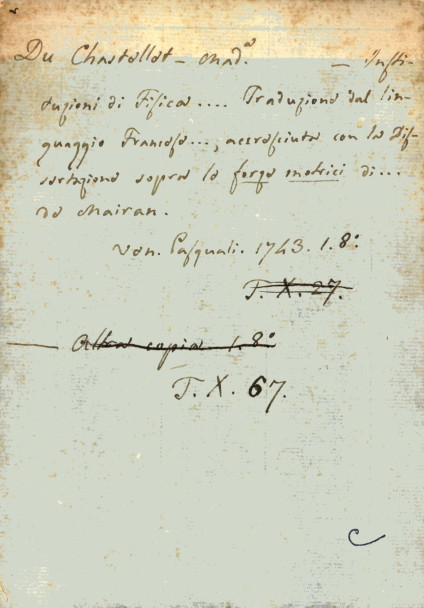 Du Chastellet - Mad.ᵃ — Insti-
tuzioni di Fisica.... Traduzione dal lin-
guaggio Francese..., accresciuta con la Dis-
sertazione sopra le forze motrici di...
de Mairan.
Ven. Pasquali. 1743. 1. 8.º
T. X. 27.
— Altra copia. 1. 8.º
T. X. 67.
C